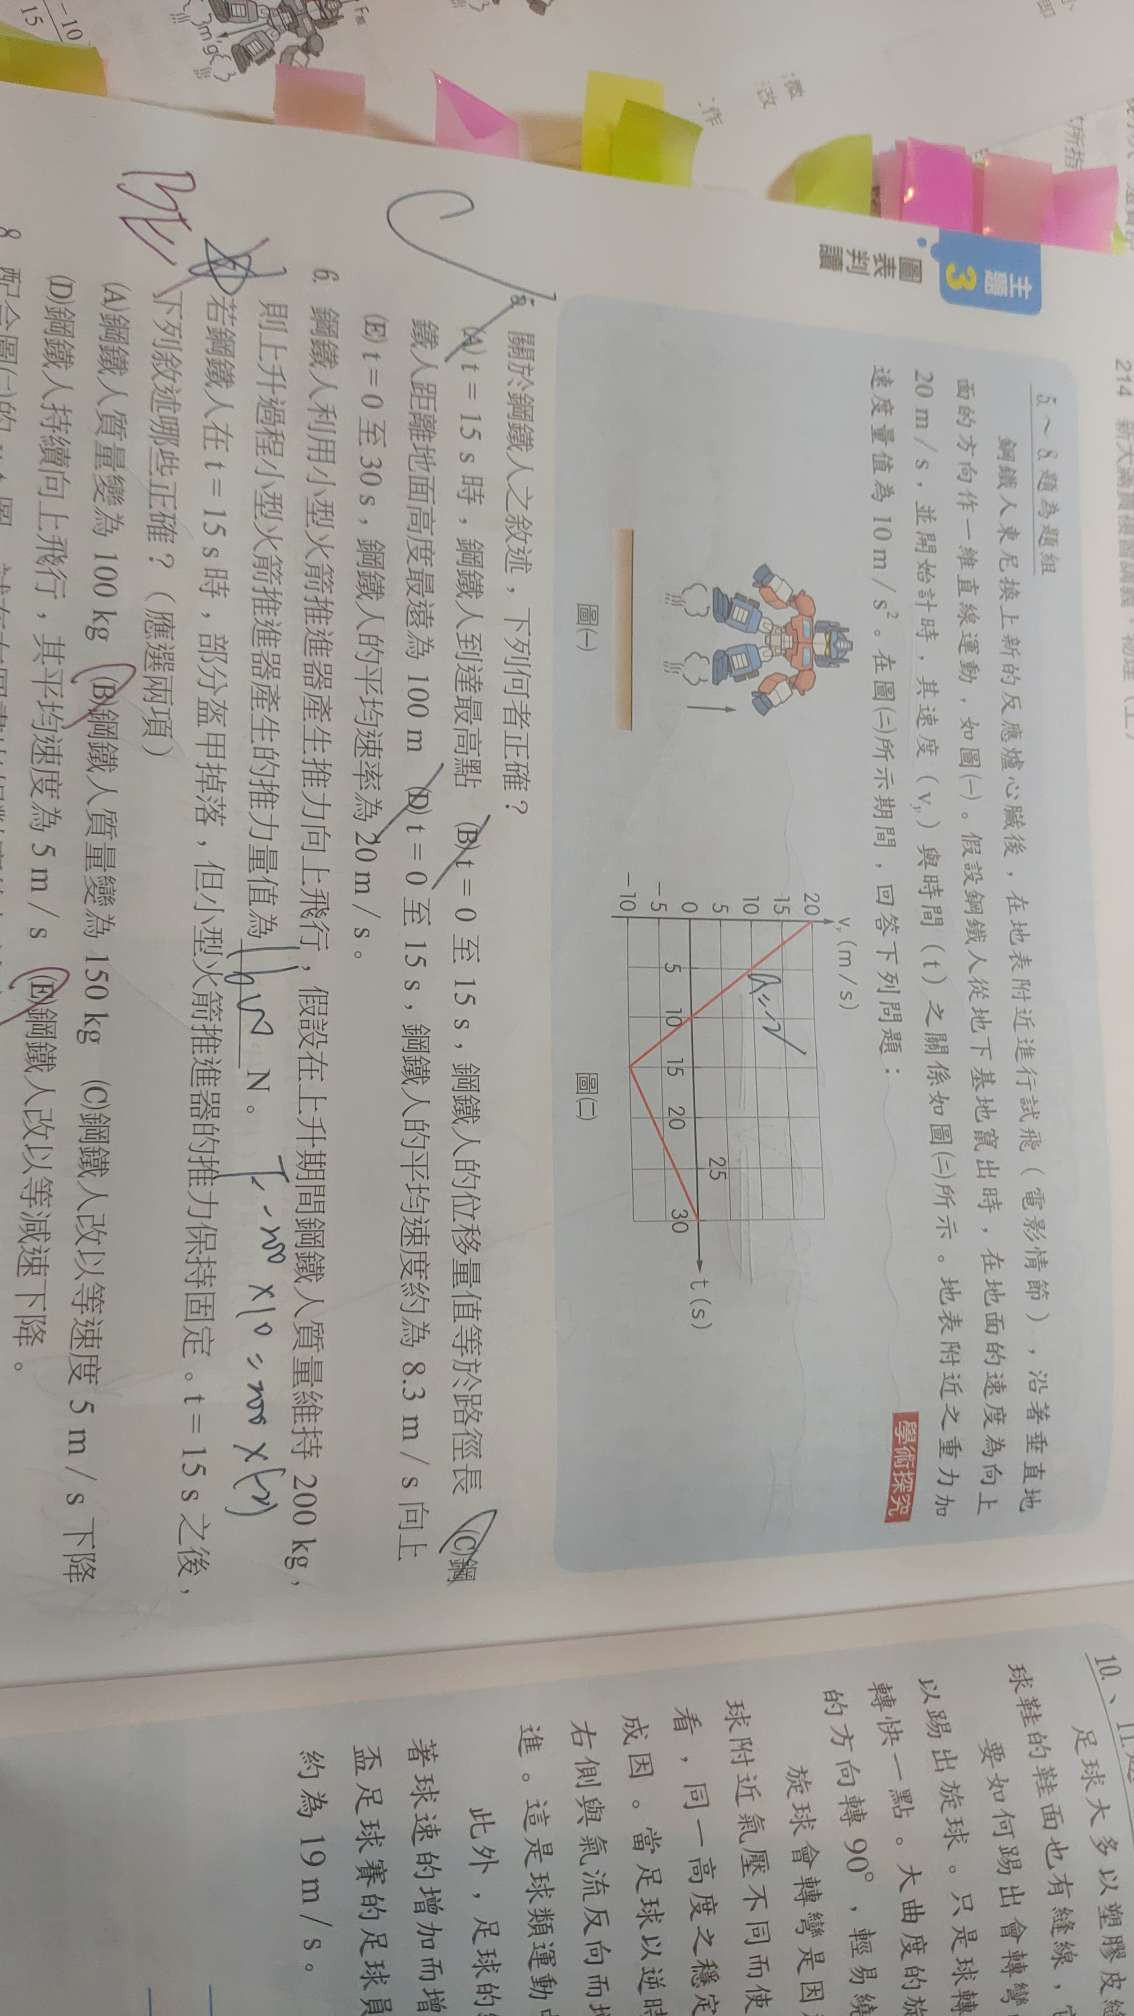 214 新大滿貫複習講義・物理（上）
主題3
圖表判讀
5.～8.題為題組
鋼鐵人東尼換上新的反應爐心臟後，在地表附近進行試飛（電影情節），沿著垂直地
面的方向作一維直線運動，如圖㈠。假設鋼鐵人從地下基地竄出時，在地面的速度為向上
20 m／s，並開始計時，其速度（vy）與時間（t）之關係如圖㈡所示。地表附近之重力加
速度量值為 10 m／s²。在圖㈡所示期間，回答下列問題：
學術探究
圖㈠
vy (m／s)
20
15
10
5
0
－5
－10
5
10
15
20
25
30
t (s)
a=-2
圖㈡
5. 關於鋼鐵人之敘述，下列何者正確？
(A) t＝15 s 時，鋼鐵人到達最高點 (B) t＝0 至 15 s，鋼鐵人的位移量值等於路徑長 (C)鋼
鐵人距離地面高度最遠為 100 m (D) t＝0 至 15 s，鋼鐵人的平均速度約為 8.3 m／s 向上
(E) t＝0 至 30 s，鋼鐵人的平均速率為 20 m／s。
6. 鋼鐵人利用小型火箭推進器產生推力向上飛行，假設在上升期間鋼鐵人質量維持 200 kg，
則上升過程小型火箭推進器產生的推力量值為 1600 N。
T-200×10=200×(-2)
若鋼鐵人在 t＝15 s 時，部分盔甲掉落，但小型火箭推進器的推力保持固定。t＝15 s 之後，
下列敘述哪些正確？（應選兩項）
(A)鋼鐵人質量變為 100 kg (B)鋼鐵人質量變為 150 kg (C)鋼鐵人改以等速度 5 m／s 下降
(D)鋼鐵人持續向上飛行，其平均速度為 5 m／s (E)鋼鐵人改以等減速下降。
8. 配合圖㈠的
10.、11.題
足球大多以塑膠皮
球鞋的鞋面也有縫線，
要如何踢出會轉彎
以踢出旋球。只是球轉
轉快一點。大曲度的旋
的方向轉 90°，輕易繞
旋球會轉彎是因
球附近氣壓不同而使
看，同一高度之穩定
成因。當足球以逆時
右側與氣流反向而
進。這是球類運動
此外，足球的
著球速的增加而增
盃足球賽的足球員
約為 19 m／s。